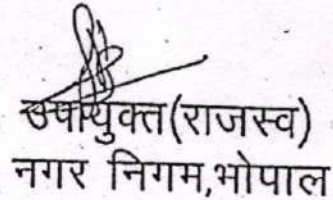 उपायुक्त(राजस्व)
नगर निगम,भोपाल